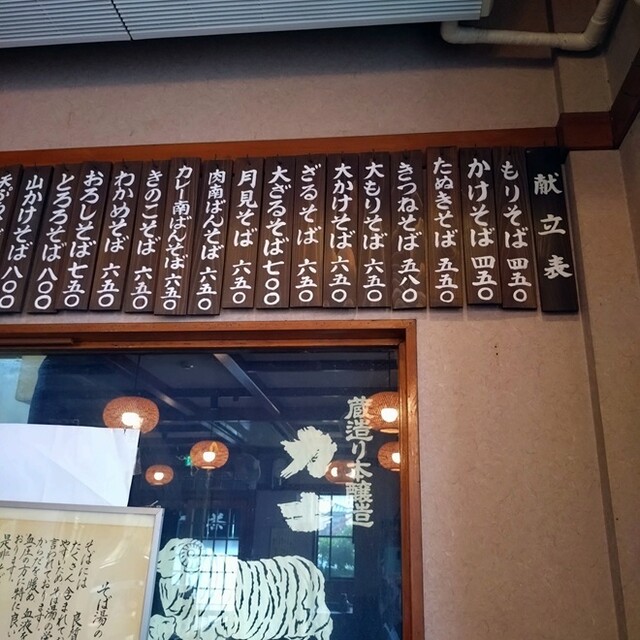 献立表
もりそば 四五〇
かけそば 四五〇
たぬきそば 五五〇
きつねそば 五八〇
大もりそば 六五〇
大かけそば 六五〇
ざるそば 六五〇
大ざるそば 七〇〇
月見そば 六五〇
肉南ばんそば 六五〇
カレー南ばんそば 六五〇
きのこそば 六五〇
わかめそば 六五〇
おろしそば 七五〇
とろろそば 八〇〇
山かけそば 八〇〇
蔵造り本醸造
そば湯の
そばには
たくさん含まれて
やすいため
言われております